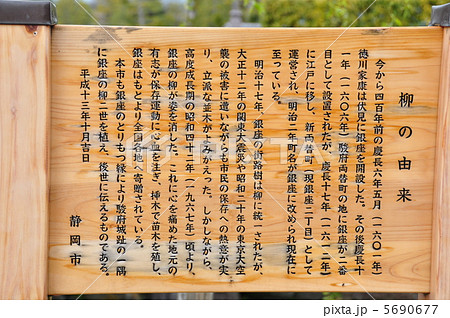 柳の由来
今から四百年前の慶長六年五月(一六〇一年)
徳川家康は伏見に銀座を開設した。その後慶長十
一年(一六〇六年)駿府両替町の地に銀座が二番
目として設置されたが、慶長十七年(一六一二年)
に江戸に移し、新両替町(現銀座二丁目)として
運営され、明治二年町名が銀座に改められ現在に
至っている。
明治十七年、銀座の街路樹は柳に統一されたが、
大正十二年の関東大震災や昭和二十年の東京大空
襲の被害に遭いながらも市民の保存への熱意が実
り、立派な並木がよみがえった。しかしながら、
高度成長期の昭和四十二年(一九六七年)頃より、
銀座の柳が姿を消した。これに心を痛めた地元の
有志が保存運動に心血を注ぎ、挿木で苗木を殖し、
銀座はもとより全国各地へ寄贈されている。
本市も銀座のとりもつ縁により駿府城趾の一隅
に銀座の柳二世を植え、後世に伝えるものである。
平成十三年十月吉日
静岡市
PIXTA
pixta.jp - 5690677